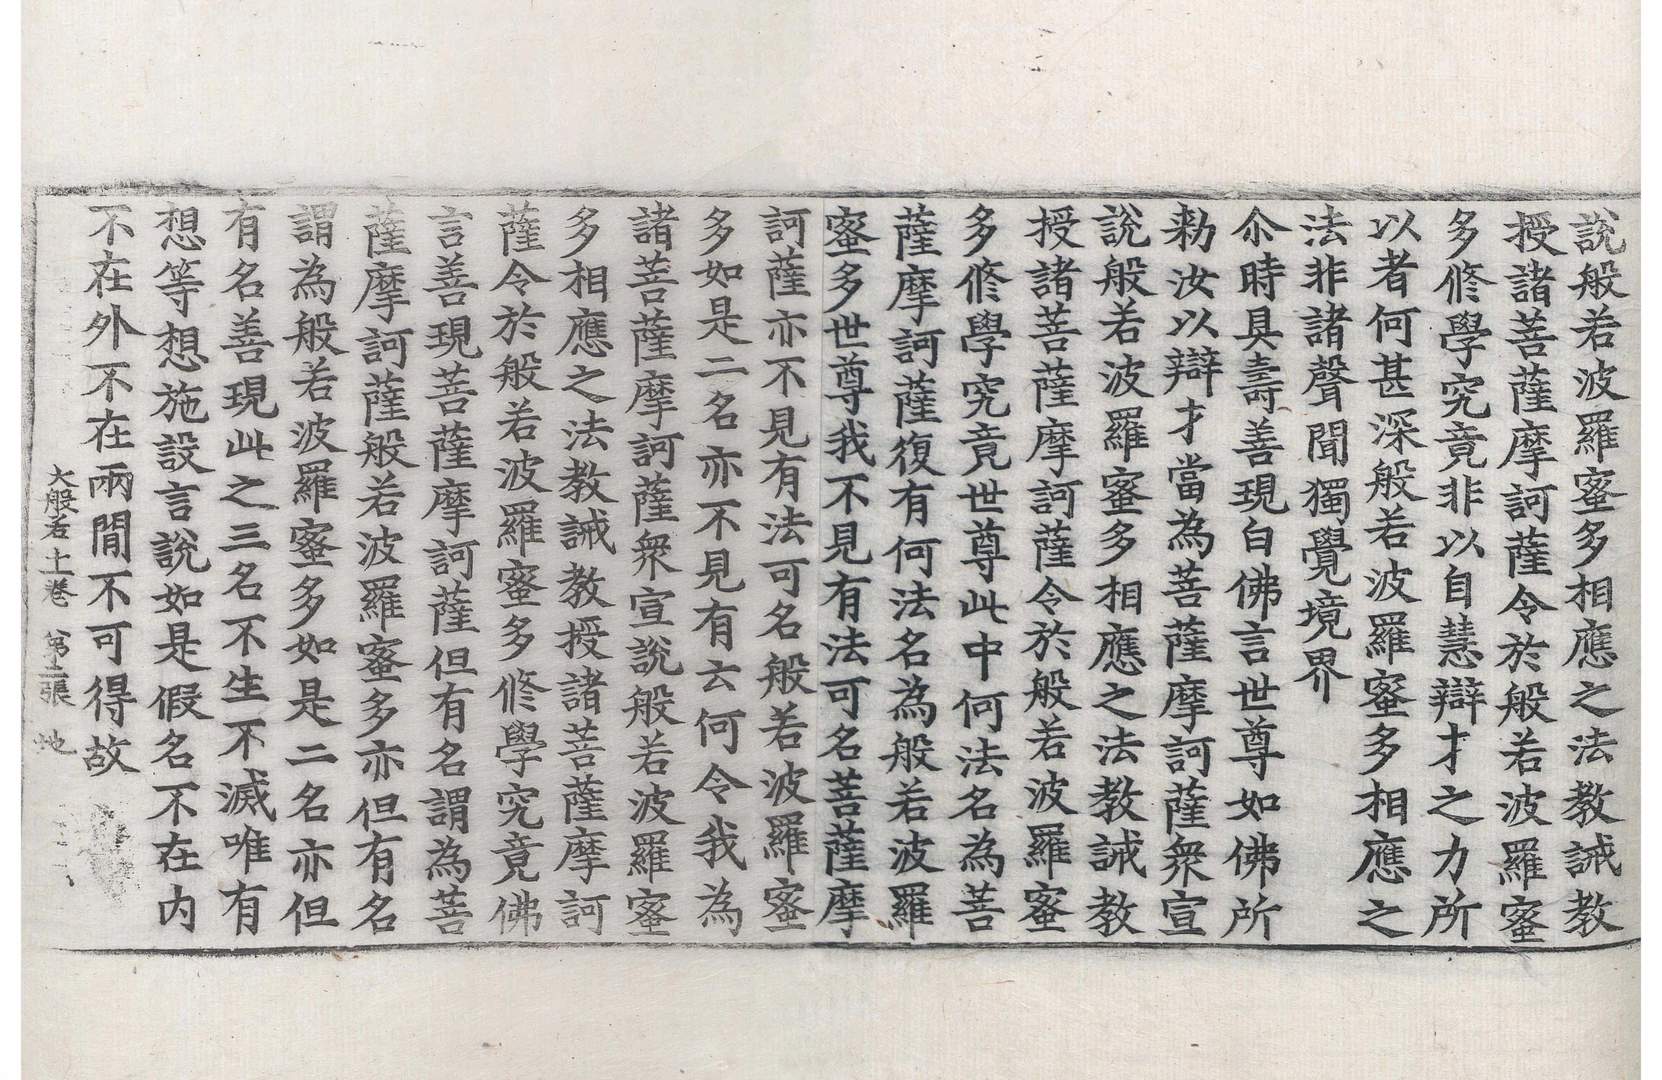 說般若波羅蜜多相應之法教誡教
授諸菩薩摩訶薩令於般若波羅蜜
多修學究竟非以自慧辯才之力所
以者何甚深般若波羅蜜多相應之
法非諸聲聞獨覺境界
尒時具壽善現白佛言世尊如佛所
勑汝以辯才當為菩薩摩訶薩衆宣
說般若波羅蜜多相應之法教誡教
授諸菩薩摩訶薩令於般若波羅蜜
多修學究竟世尊此中何法名為菩
薩摩訶薩復有何法名為般若波羅
蜜多世尊我不見有法可名菩薩摩
訶薩亦不見有法可名般若波羅蜜
多如是二名亦不見有云何令我為
諸菩薩摩訶薩衆宣說般若波羅蜜
多相應之法教誡教授諸菩薩摩訶
薩令於般若波羅蜜多修學究竟佛
言善現菩薩摩訶薩但有名謂為菩
薩摩訶薩般若波羅蜜多亦但有名
謂為般若波羅蜜多如是二名亦但
有名善現此之三名不生不滅唯有
想等想施設言說如是假名不在内
不在外不在兩閒不可得故
大般若十一卷 第十二張 地